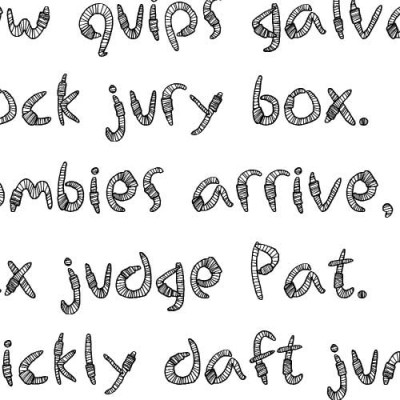 w quips galv
ock jury box.
ombies arrive,
x judge Pat.
ickly daft jun